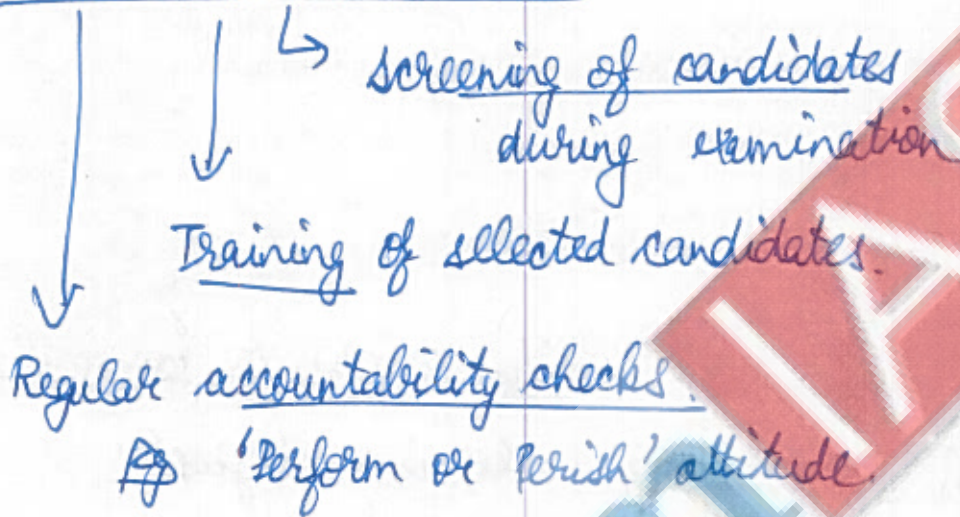 screening of candidates
during examination
Training of selected candidates.
Regular accountability checks.
Eg 'Perform or Perish' attitude.
IA